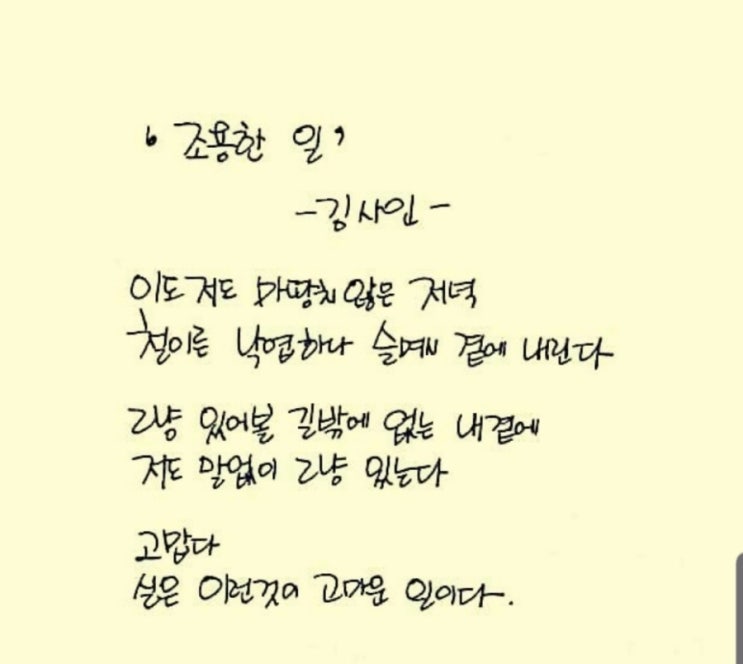 '조용한 일'
-김사인-
이도저도 마땅치 않은 저녁
철이른 낙엽하나 슬며시 곁에 내린다
그냥 있어볼 길밖에 없는 내곁에
저도 말없이 그냥 있는다
고맙다
실은 이런것이 고마운 일이다.